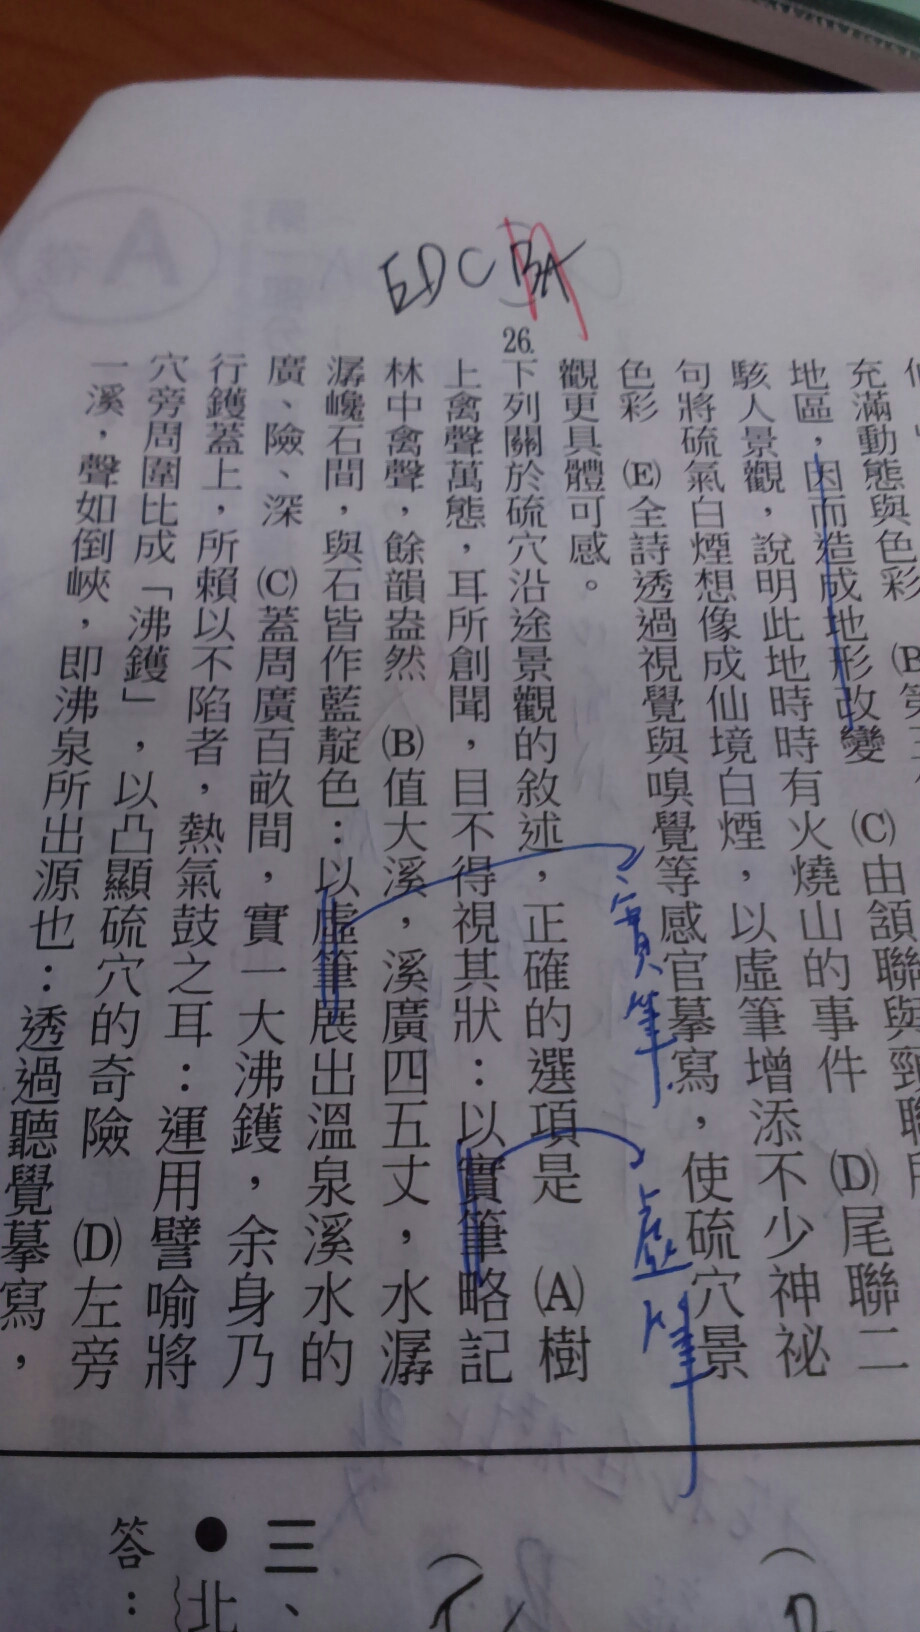 EDCBA
充滿動態與色彩 (B)第
地區，因而造成地形改變 (C)由頷聯與頸聯
駭人景觀，說明此地時時有火燒山的事件 (D)尾聯二
句將硫氣白煙想像成仙境白煙，以虛筆增添不少神祕
色彩 (E)全詩透過視覺與嗅覺等感官摹寫，使硫穴景
觀更具體可感。
實筆
虛筆
26.下列關於硫穴沿途景觀的敘述，正確的選項是 (A)樹
上禽聲萬態，耳所創聞，目不得視其狀：以實筆略記
林中禽聲，餘韻盎然 (B)值大溪，溪廣四五丈，水潺
潺巉石間，與石皆作藍靛色：以虛筆展出溫泉溪水的
廣、險、深 (C)蓋周廣百畝間，實一大沸鑊，余身乃
行鑊蓋上，所賴以不陷者，熱氣鼓之耳：運用譬喻將
穴旁周圍比成「沸鑊」，以凸顯硫穴的奇險 (D)左旁
一溪，聲如倒峽，即沸泉所出源也：透過聽覺摹寫，
三、
●北
答：